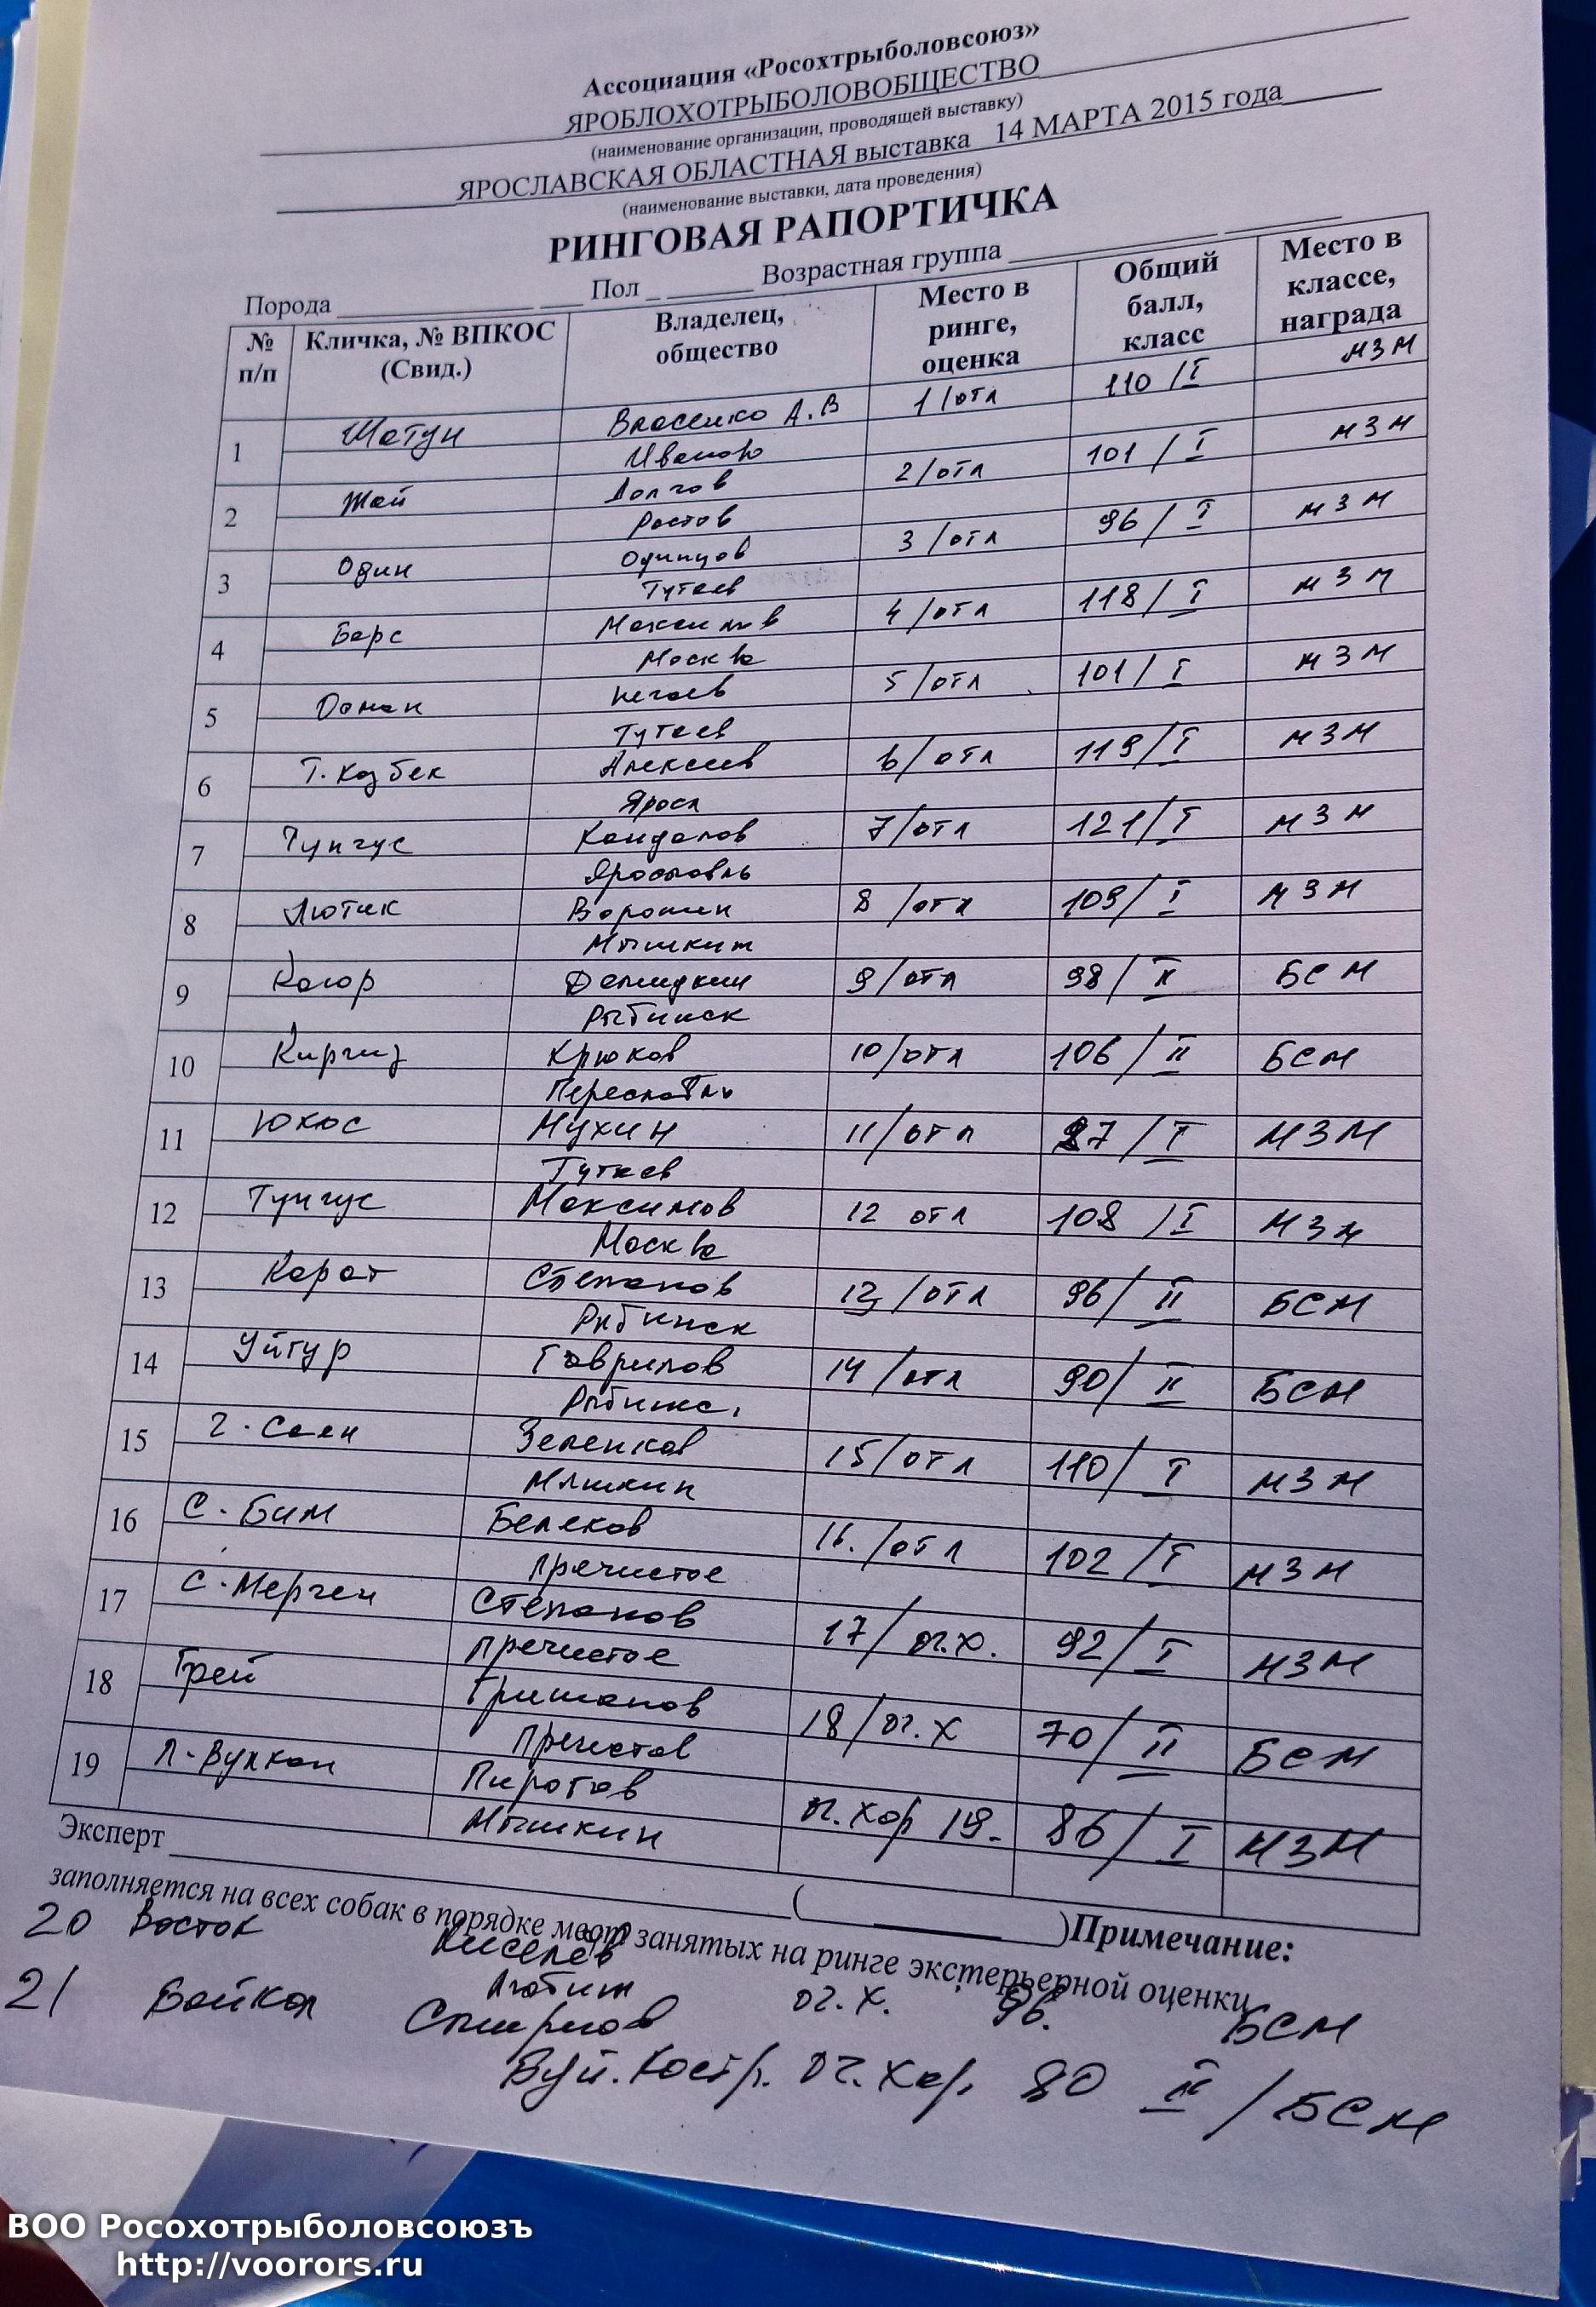 Ассоциация «Росохтрыболовсоюз»
ЯРОБЛОХОТРЫБОЛОВОБЩЕСТВО
(наименование организации, проводящей выставку)
ЯРОСЛАВСКАЯ ОБЛАСТНАЯ выставка 14 МАРТА 2015 года
(наименование выставки, дата проведения)
РИНГОВАЯ РАПОРТИЧКА
Порода Пол Возрастная группа
№ п/п Кличка, № ВПКОС (Свид.) Владелец, общество Место в ринге, оценка Общий балл, класс Место в классе, награда
1 Шатун Власенко А.В 1/отл 110/I МЗМ
Иваново
2 Жай Долгов 2/отл 101/I МЗМ
Ростов
3 Один Одинцов 3/отл 96/I МЗМ
Тутаев
4 Барс Максимов 4/отл 118/I МЗМ
Москва
5 Осман Нечаев 5/отл 101/I МЗМ
Тутаев
6 Т.Казбек Алексеев 6/отл 119/I МЗМ
Яросл
7 Тунгус Кандалов 7/отл 121/I МЗМ
Ярославль
8 Лютик Воронин 8/отл 109/I МЗМ
Мышкин
9 Кагор 9/отл 98/II БСМ
Рыбинск
10 Киргиз Крюков 10/отл 106/II БСМ
11 Юкос Мухин 11/отл /I МЗМ
Тутаев
12 Тунгус Максимов 12 отл 108/I МЗМ
Москва
13 Карат Степанов 13/отл 96/II БСМ
Рыбинск
14 Уйгур Гаврилов 14/отл 90/II БСМ
15 Г.Саян Зеленков 15/отл 110/I МЗМ
Мышкин
16 С.Бим Беляков 16./отл 102/I МЗМ
Пречистое
17 С.Мерген Степанов 17/оч.х. 92/I МЗМ
Пречистое
18 Грей Гришанов 18/оч.х 70/II БСМ
19 Л-Вулкан Пирогов оч.хор 19. 86/I МЗМ
Мышкин
Эксперт ( )Примечание:
заполняется на всех собак в порядке мест занятых на ринге экстерьерной оценки
20 Восток Киселёв оч.х. 96. БСМ
Любим
21 Байкал Смирнов
Буй.Костр. оч.хор. 80 II/БСМ
ВОО Росохотрыболовсоюзъ
http://voorors.ru